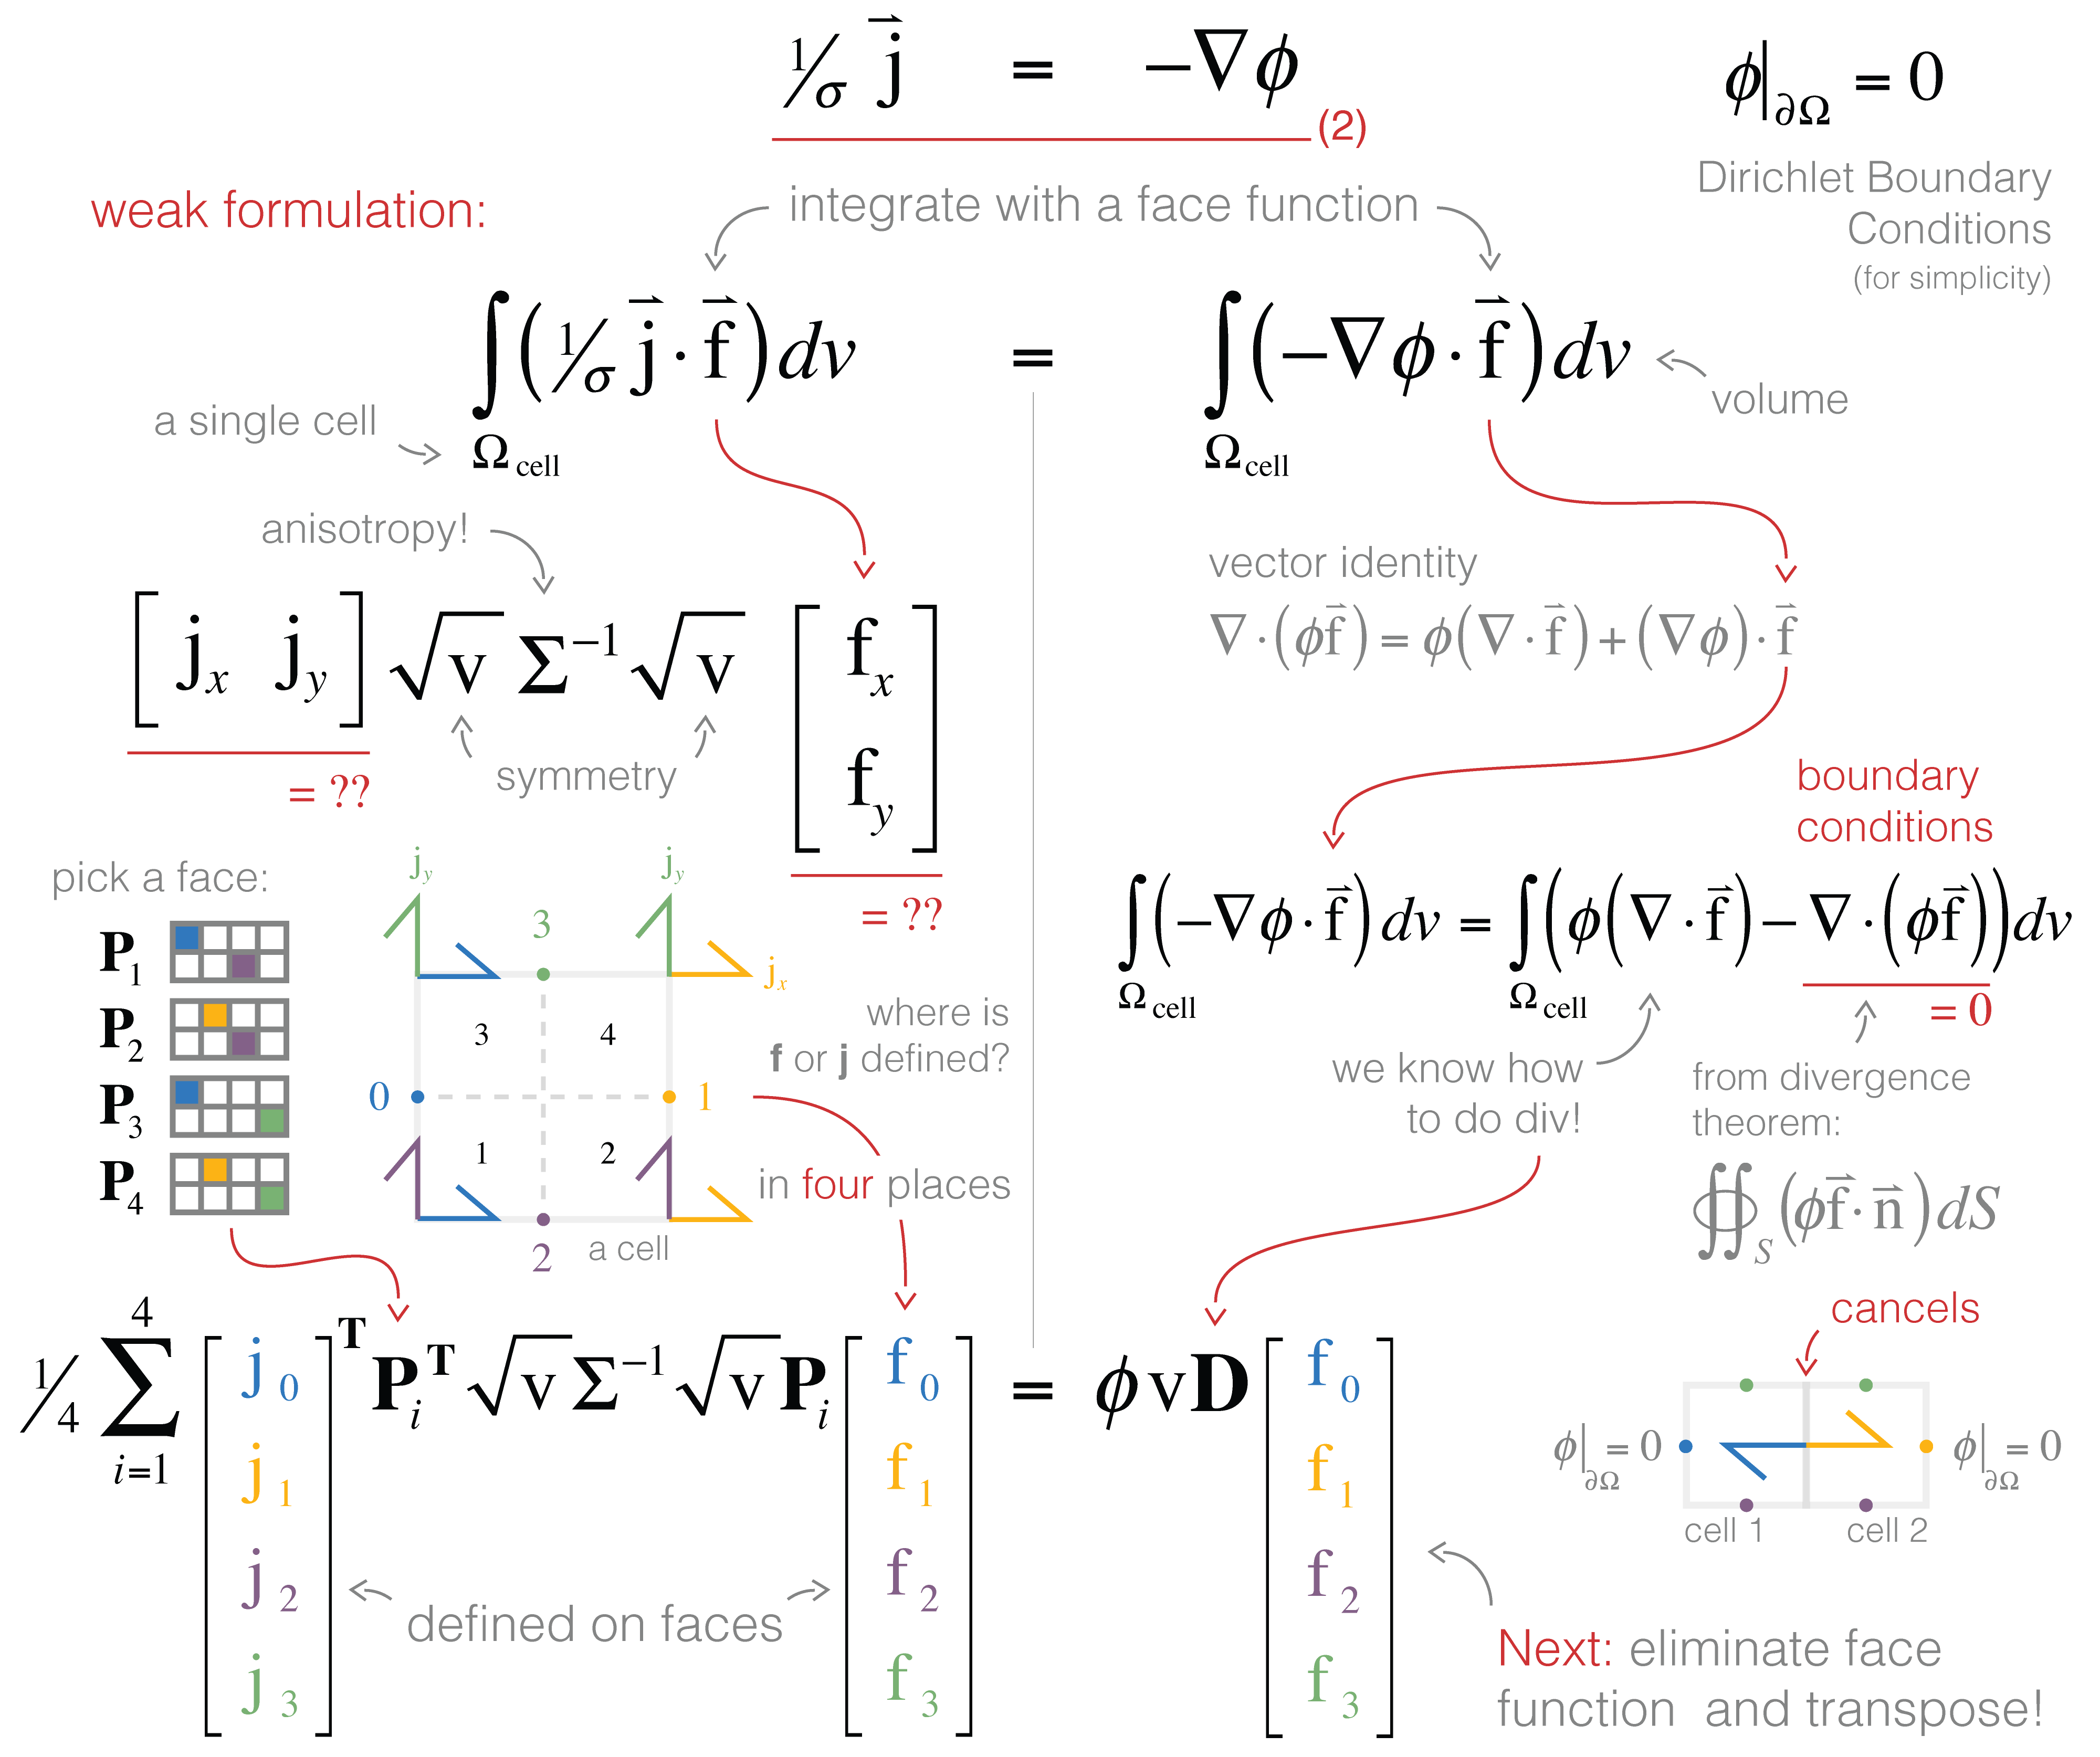 1/σ j⃗ = −∇ϕ (2)
ϕ|∂Ω = 0
Dirichlet Boundary
Conditions
(for simplicity)
weak formulation:
integrate with a face function
∫Ωcell (1/σ j⃗ · f⃗) dv = ∫Ωcell (−∇ϕ · f⃗) dv
volume
a single cell
anisotropy!
[jx jy] √v Σ⁻¹ √v [fx fy]
= ??
symmetry
= ??
vector identity
∇ · (ϕf⃗) = ϕ(∇ · f⃗) + (∇ϕ) · f⃗
boundary
conditions
∫Ωcell (−∇ϕ · f⃗) dv = ∫Ωcell (ϕ(∇ · f⃗) − ∇ · (ϕf⃗)) dv
= 0
we know how
to do div!
from divergence
theorem:
∯S (ϕf⃗ · n⃗) dS
pick a face:
P1
P2
P3
P4
jy jy
3
jx
3 4
0 1
1 2
2
a cell
where is
f or j defined?
in four places
1/4 ∑ i=1 4 [j0 j1 j2 j3]ᵀ Piᵀ √v Σ⁻¹ √v Pi [f0 f1 f2 f3] = ϕvD [f0 f1 f2 f3]
defined on faces
cancels
ϕ|∂Ω = 0 ϕ|∂Ω = 0
cell 1 cell 2
Next: eliminate face
function and transpose!